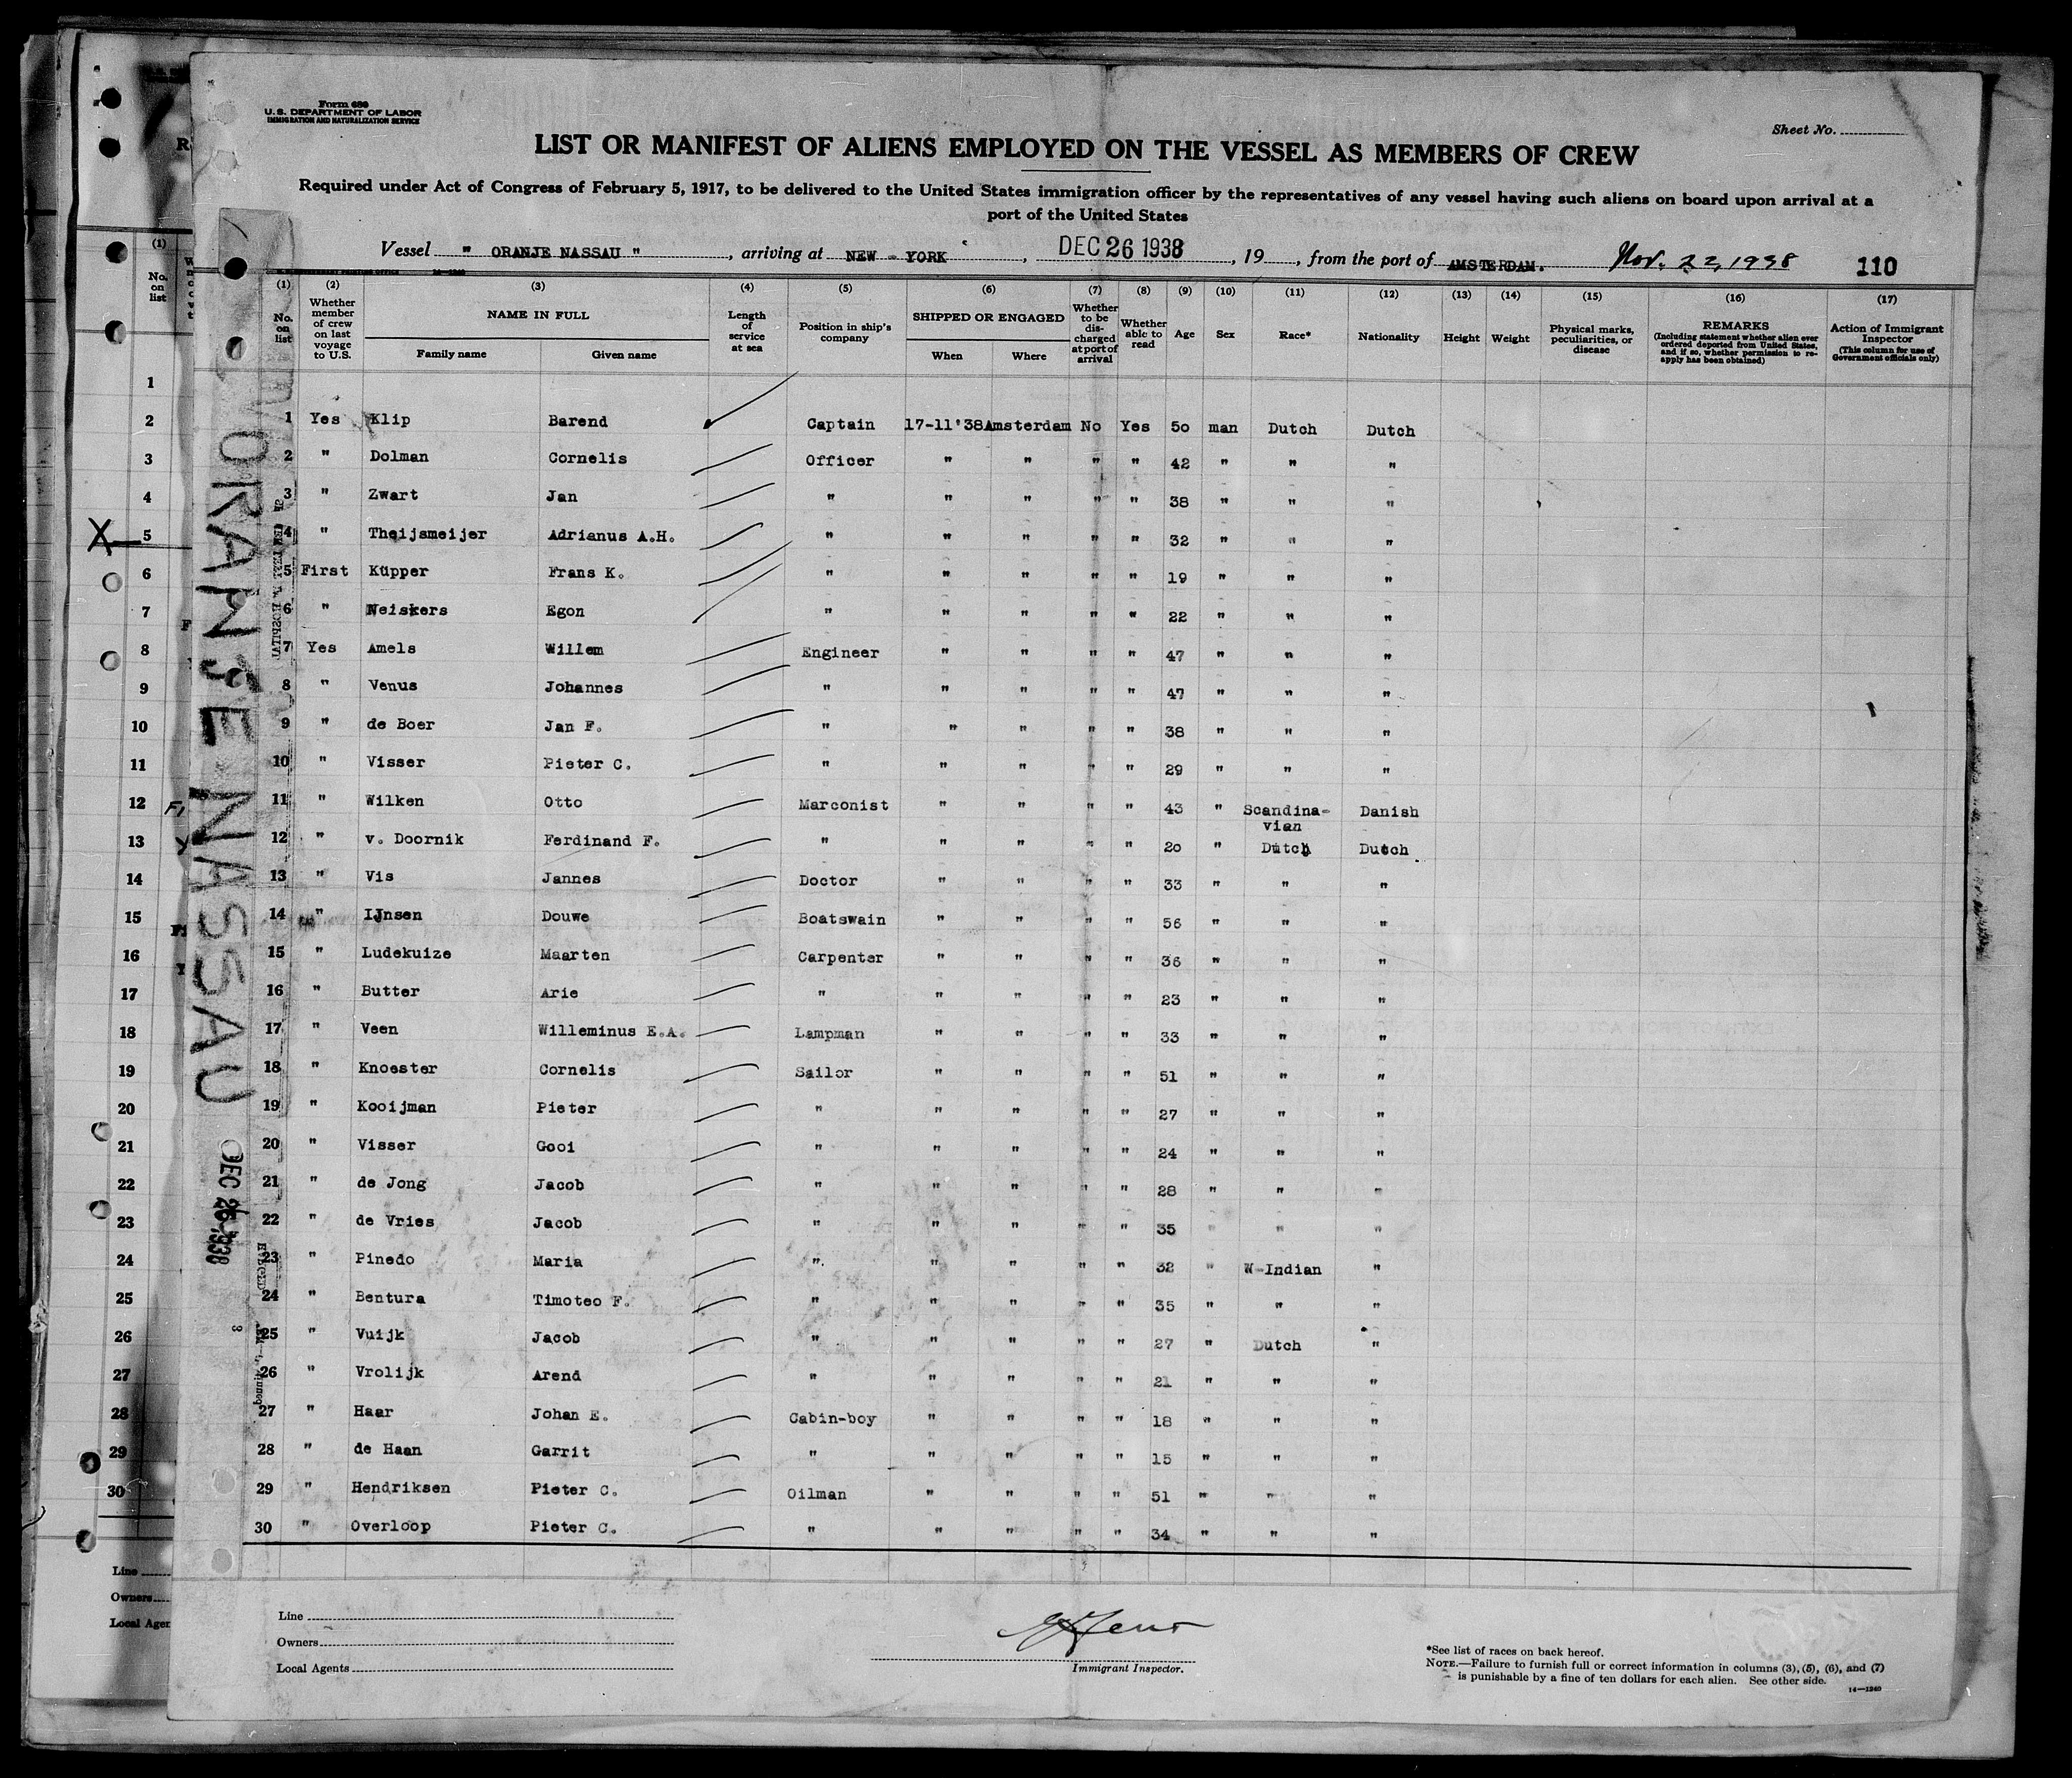 Form 680
U.S. DEPARTMENT OF LABOR
IMMIGRATION AND NATURALIZATION SERVICE
Sheet No.
LIST OR MANIFEST OF ALIENS EMPLOYED ON THE VESSEL AS MEMBERS OF CREW
Required under Act of Congress of February 5, 1917, to be delivered to the United States immigration officer by the representatives of any vessel having such aliens on board upon arrival at a
port of the United States
Vessel " ORANJE NASSAU " , arriving at NEW - YORK , DEC 26 1938 , 19 , from the port of AMSTERDAM. Nov. 22, 1938 110
(1) (2) (3) (4) (5) (6) (7) (8) (9) (10) (11) (12) (13) (14) (15) (16) (17)
No. on list Whether member of crew on last voyage to U.S. NAME IN FULL Family name Given name Length of service at sea Position in ship's company SHIPPED OR ENGAGED When Where Whether to be discharged at port of arrival Whether able to read Age Sex Race* Nationality Height Weight Physical marks, peculiarities, or disease REMARKS (Including statement whether alien ever ordered deported from United States, and if so, whether permission to reapply has been obtained) Action of Immigrant Inspector (This column for use of Government officials only)
1 Yes Klip Barend Captain 17-11'38 Amsterdam No Yes 50 man Dutch Dutch
2 " Dolman Cornelis Officer " " " " 42 " " "
3 " Zwart Jan " " " " " 38 " " "
4 " Theijsmeijer Adrianus A.H. " " " " " 32 " " "
5 First Küpper Frans K. " " " " " 19 " " "
6 " Neiskers Egon " " " " " 22 " " "
7 Yes Amels Willem Engineer " " " " 47 " " "
8 " Venus Johannes " " " " " 47 " " "
9 " de Boer Jan F. " " " " " 38 " " "
10 " Visser Pieter C. " " " " " 29 " " "
11 " Wilken Otto Marconist " " " " 43 " Scandina-
vian Danish
12 " v. Doornik Ferdinand F. " " " " " 20 " Dutch Dutch
13 " Vis Jannes Doctor " " " " 33 " " "
14 " IJnsen Douwe Boatswain " " " " 56 " " "
15 " Ludekuize Maarten Carpenter " " " " 36 " " "
16 " Butter Arie " " " " " 23 " " "
17 " Veen Willeminus E.A. Lampman " " " " 33 " " "
18 " Knoester Cornelis Sailor " " " " 51 " " "
19 " Kooijman Pieter " " " " " 27 " " "
20 " Visser Gooi " " " " " 24 " " "
21 " de Jong Jacob " " " " " 28 " " "
22 " de Vries Jacob " " " " " 35 " " "
23 " Pinedo Maria " " " " " 32 " W-Indian "
24 " Bentura Timoteo F. " " " " " 35 " " "
25 " Vuijk Jacob " " " " " 27 " Dutch "
26 " Vrolijk Arend " " " " " 21 " " "
27 " Haar Johan E. Cabin-boy " " " " 18 " " "
28 " de Haan Garrit " " " " " 15 " " "
29 " Hendriksen Pieter C. Oilman " " " " 51 " " "
30 " Overloop Pieter C. " " " " " 34 " " "
Line
Owners
Local Agents
Immigrant Inspector.
*See list of races on back hereof.
NOTE.—Failure to furnish full or correct information in columns (3), (5), (6), and (7)
is punishable by a fine of ten dollars for each alien. See other side.
14—1240
ORANJE NASSAU
DEC 26 1938
(1)
No. on list
1
2
3
4
X 5
6
7
8
9
10
11
12
13
14
15
16
17
18
19
20
21
22
23
24
25
26
27
28
29
30
Line
Owners
Local Agen